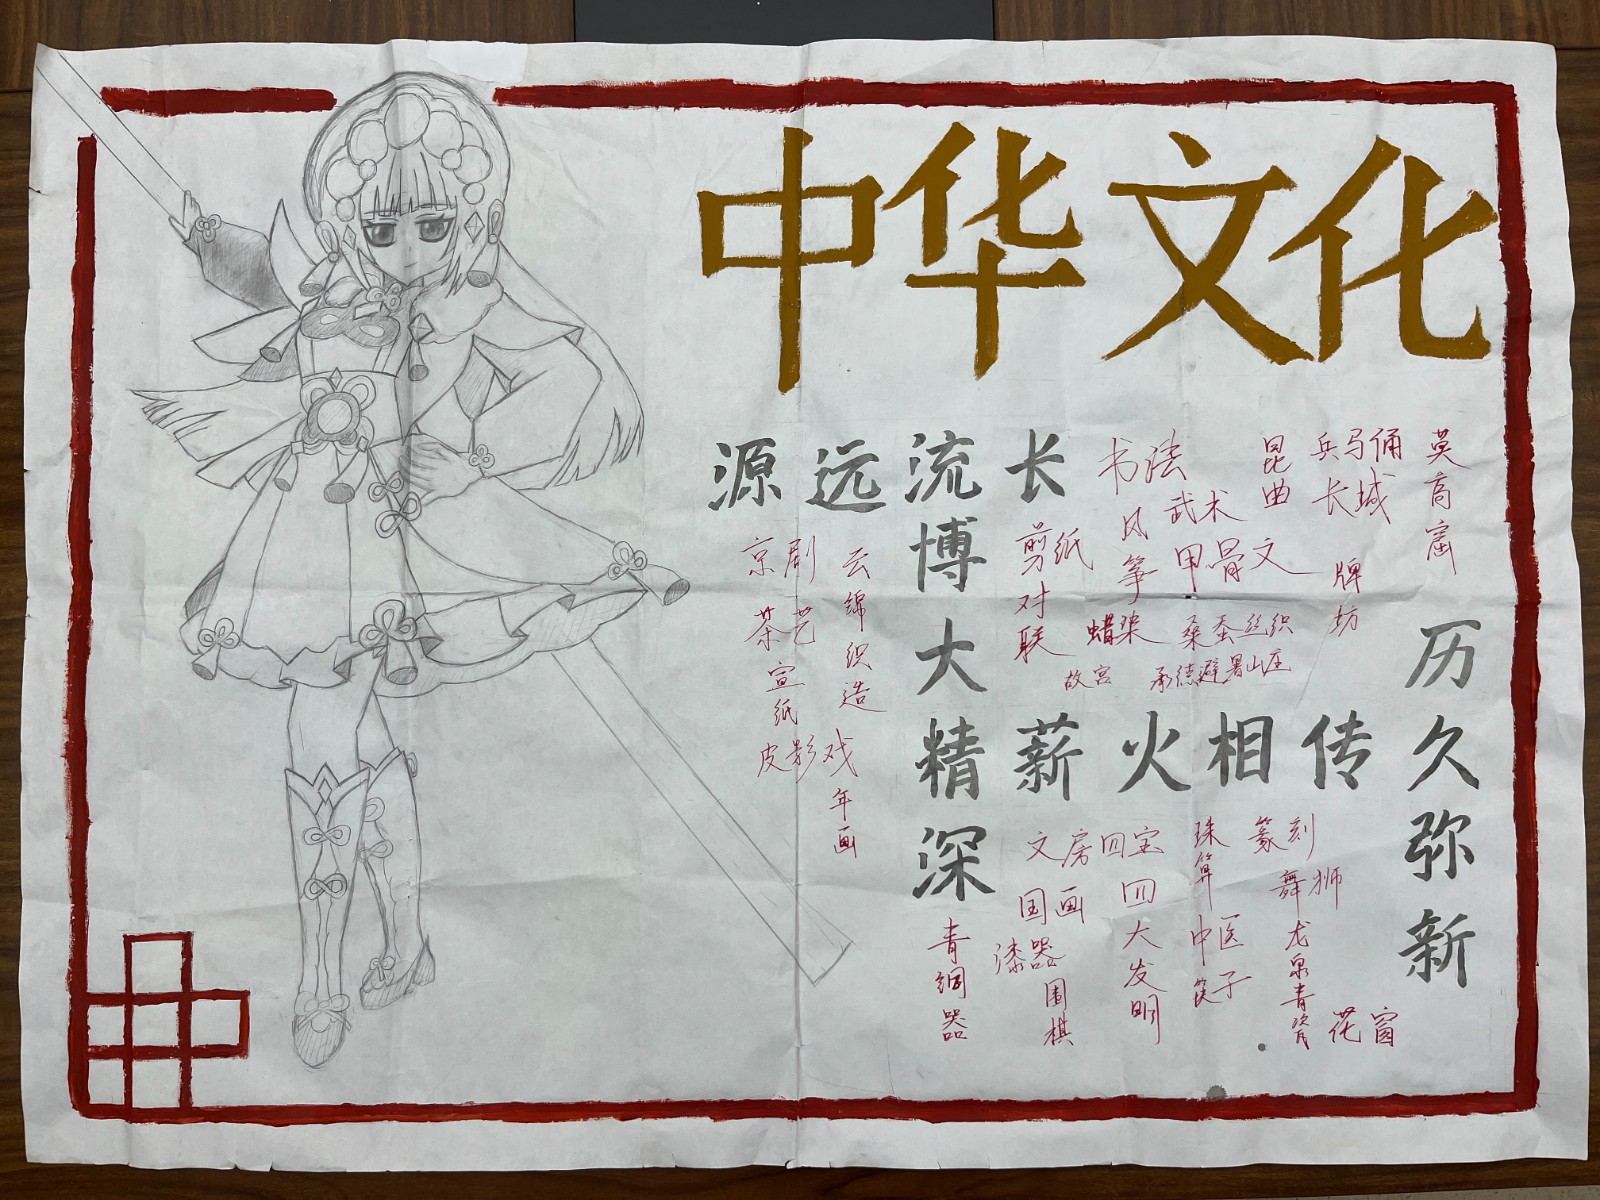 中华文化
源远流长
博大精深
薪火相传
历久弥新
京剧
茶艺
宣纸
皮影戏
年画
云绵织造
剪纸
对联
书法
风筝
武术
甲骨文
蜡染
桑蚕丝织
故宫
承德避暑山庄
昆曲
兵马俑
长城
牌坊
莫高窟
文房四宝
国画
漆器
围棋
青铜器
四大发明
珠算
中医
筷子
篆刻
舞狮
龙泉青瓷
花窗